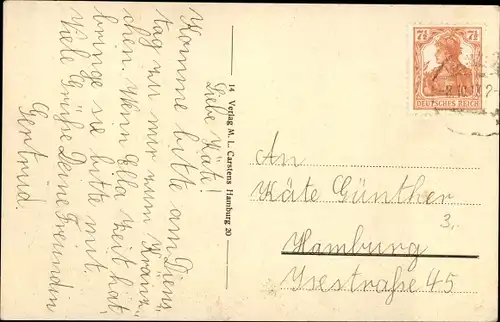 Liebe Käte!
Komme bitte am Diens,
tag zu mir zum Kränz,
chen. Wenn Ella Zeit hat,
bringe sie bitte mit.
Viele Grüße Deine Freundin
Gertrud.
14 Verlag M. L. Carstens Hamburg 20
7½ 7½
DEUTSCHES REICH
An
Käte Günther
3,
Hamburg
Isestraße 45